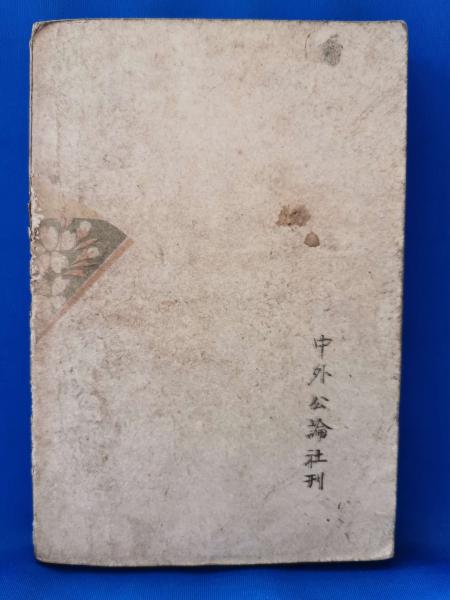 中外公論社刊